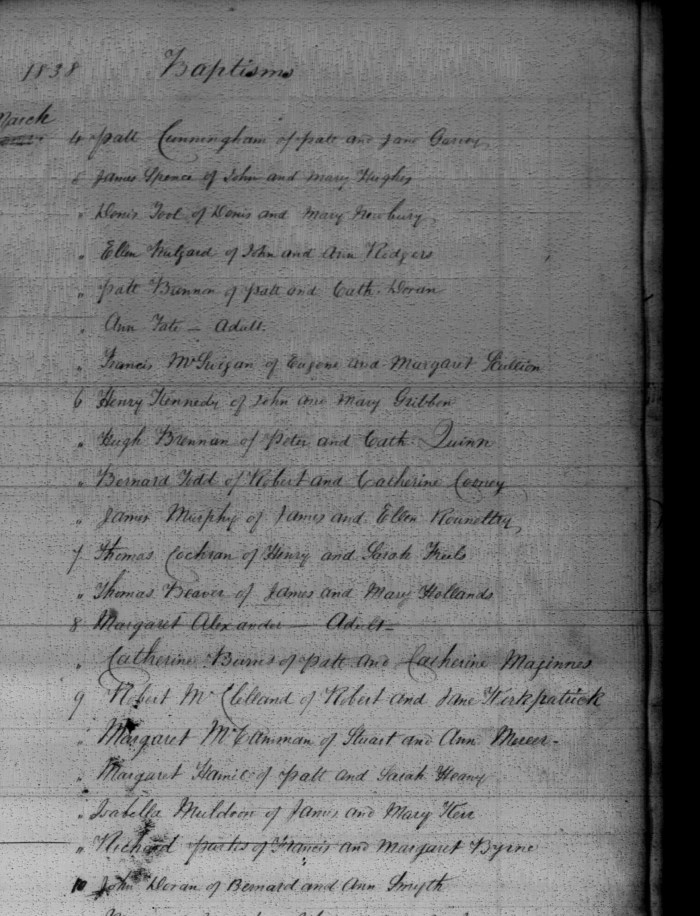 1838 Baptisms
March
4 Patt Cunningham of Patt and Jane
5 James Spence of John and Mary Hughes
" Denis Tool of Denis and Mary Newbury
" Ellen of John and Ann Rodgers
" Patt Brennon of Patt and Cath. Doran
" Ann Tate — Adult
" Francis McGuigan of Eugene and Margaret Scullion
6 Henry Kennedy of John and Mary Gribben
" Hugh Brennan of Peter and Cath. Quinn
" Bernard Todd of Robert and Catherine Cooney
" James Murphy of James and Ellen
7 Thomas Cochran of Henry and Sarah
" Thomas Beaver of James and Mary Hollands
8 Margaret Alexander — Adult
" Catherine Burns of Patt and Catherine Maginnes
9 Robert McClelland of Robert and Jane Kirkpatrick
" Margaret McCamman of Stuart and Ann Mercer
" Margaret of Patt and Sarah Heany
" Isabella Muldoon of James and Mary Kerr
" Richard of Francis and Margaret Byrne
10 John Doran of Bernard and Ann Smyth